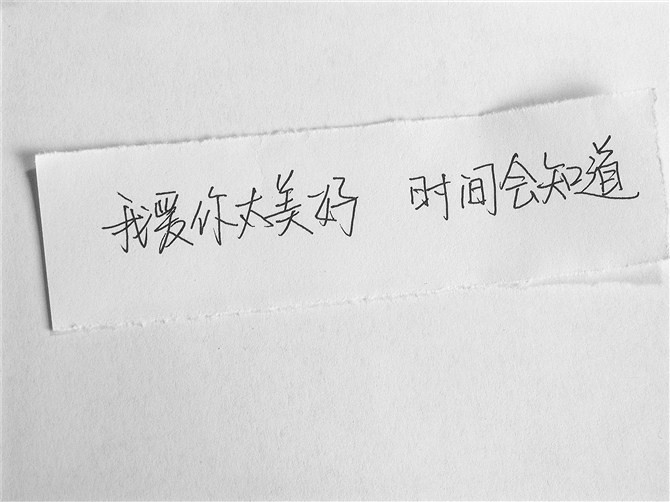 我爱你太美好 时间会知道